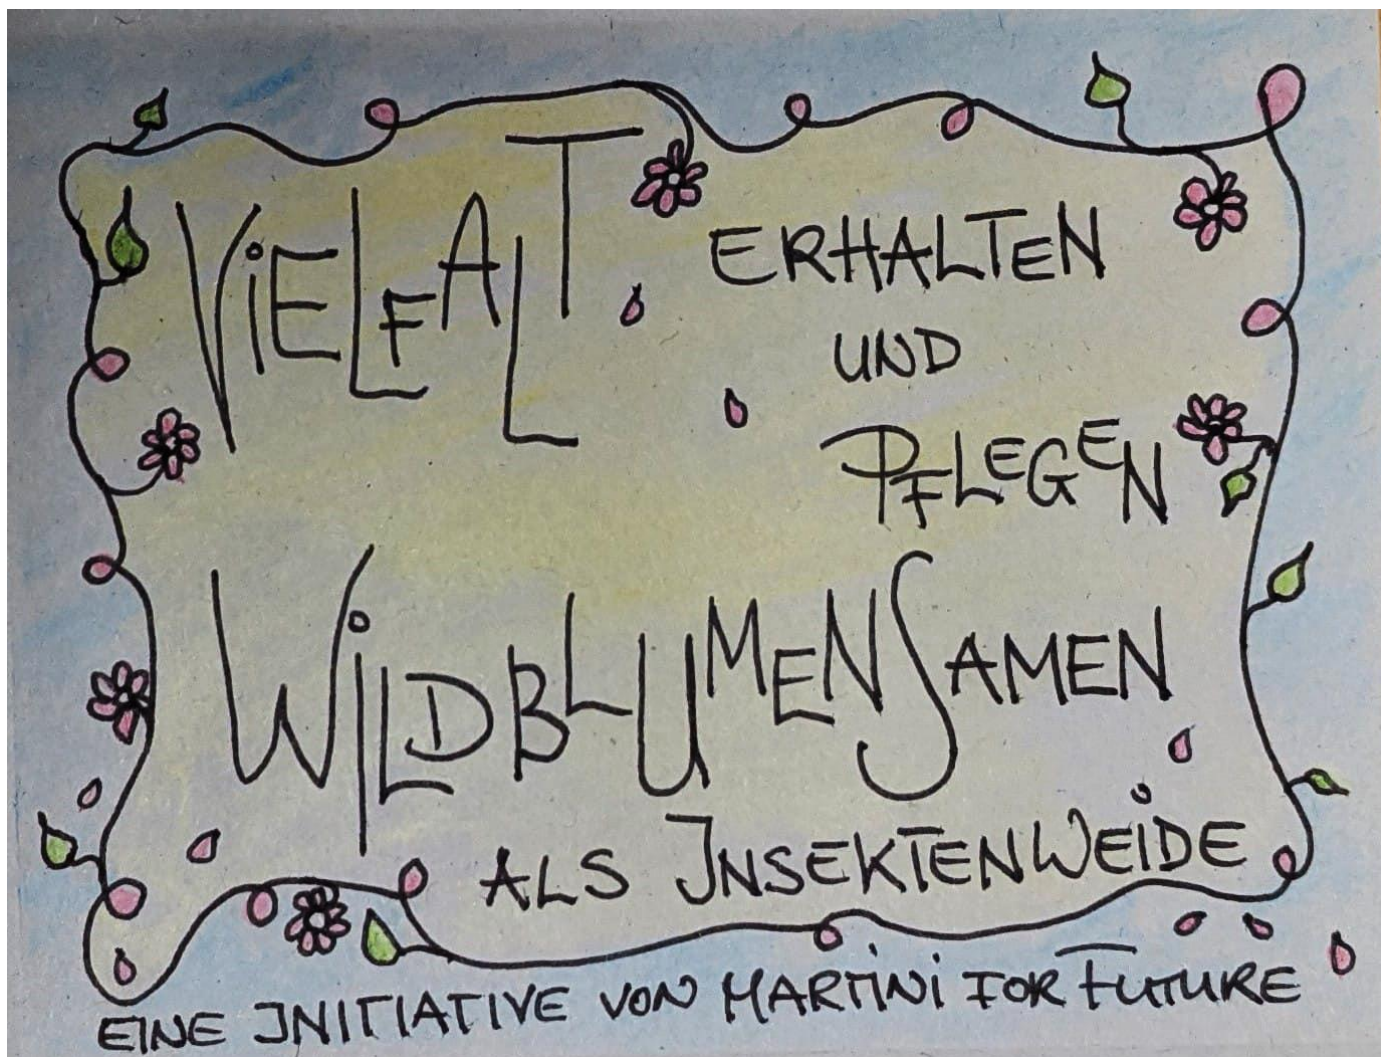 ViELFALT ERHALTEN
UND
PFLEGEN
WiLDBLUMENSAMEN
ALS INSEKTENWEiDE
EINE INITIATIVE VON MARTiNi FOR FUTURE